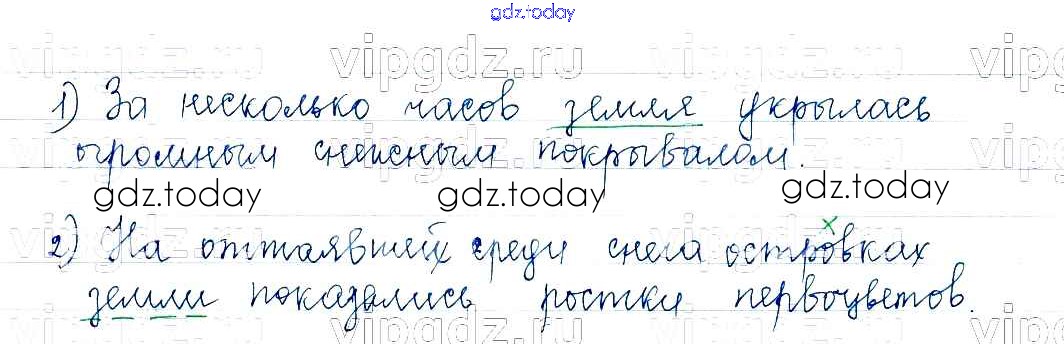 gdz.today
vipgdz.ru vipgdz.ru vipgdz
1) За несколько часов земля укрылась
огромным снежным покрывалом.
gdz.today gdz.today gdz.today
2) На оттаявшей среди снега островках
земли показались ростки первоцветов.